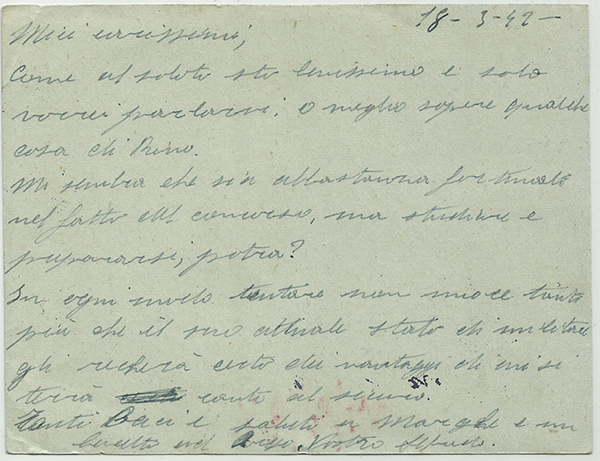 18-3-42-
Miei carissimi,
Come al solito sto benissimo e solo
vorrei parlarvi, o meglio sapere qualche
cosa di Rino.
Mi sembra che sia abbastanza fortunato
nel fatto del concorso, ma studiare e
prepararsi, potrà?
In ogni modo tentare non nuoce tanto
più che il suo attuale stato di militare
gli recherà certo dei vantaggi di cui si
terrà conto al
Tanti Baci e saluti a Marghe e un
nel Vostro